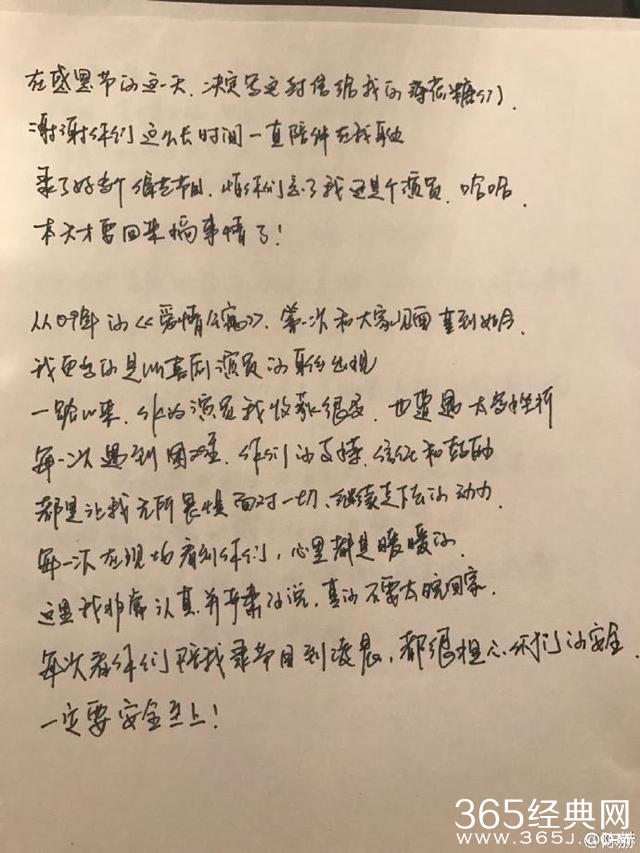 在感恩节的这一天,决定写这封信给我的薄荷糖们,
谢谢你们这么长时间一直陪伴在我身边
录了好多个综艺节目,怕你们忘了我还是个演员,哈哈,
本天才要回来搞事情了!
从09年的《爱情公寓》,第一次和大家见面直到如今,
我更多的是以喜剧演员的身份出现
一路以来,作为演员我收获很多,也遭遇太多挫折
每一次遇到困难,你们的支持、信任和鼓励
都是让我无所畏惧面对一切、继续走下去的动力
每一次在现场看到你们,心里都是暖暖的
这里我非常认真并严肃的说,真的不要太晚回家,
每次看你们陪我录节目到凌晨,都很担心你们的安全
一定要安全至上!
365经典网
www.365j.
@陈赫